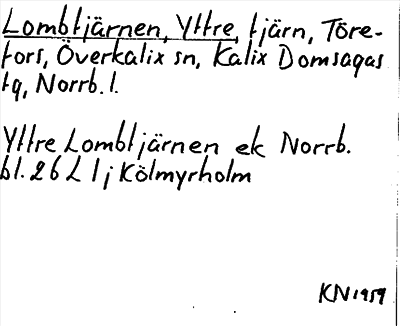 Lombtjärnen, Yttre, tjärn, Töre-
fors, Överkalix sn, Kalix Domsagas
tg, Norrb. l.
Yttre Lombtjärnen ek Norrb.
bl. 26 L 1 j Kölmyrholm
KN 1959